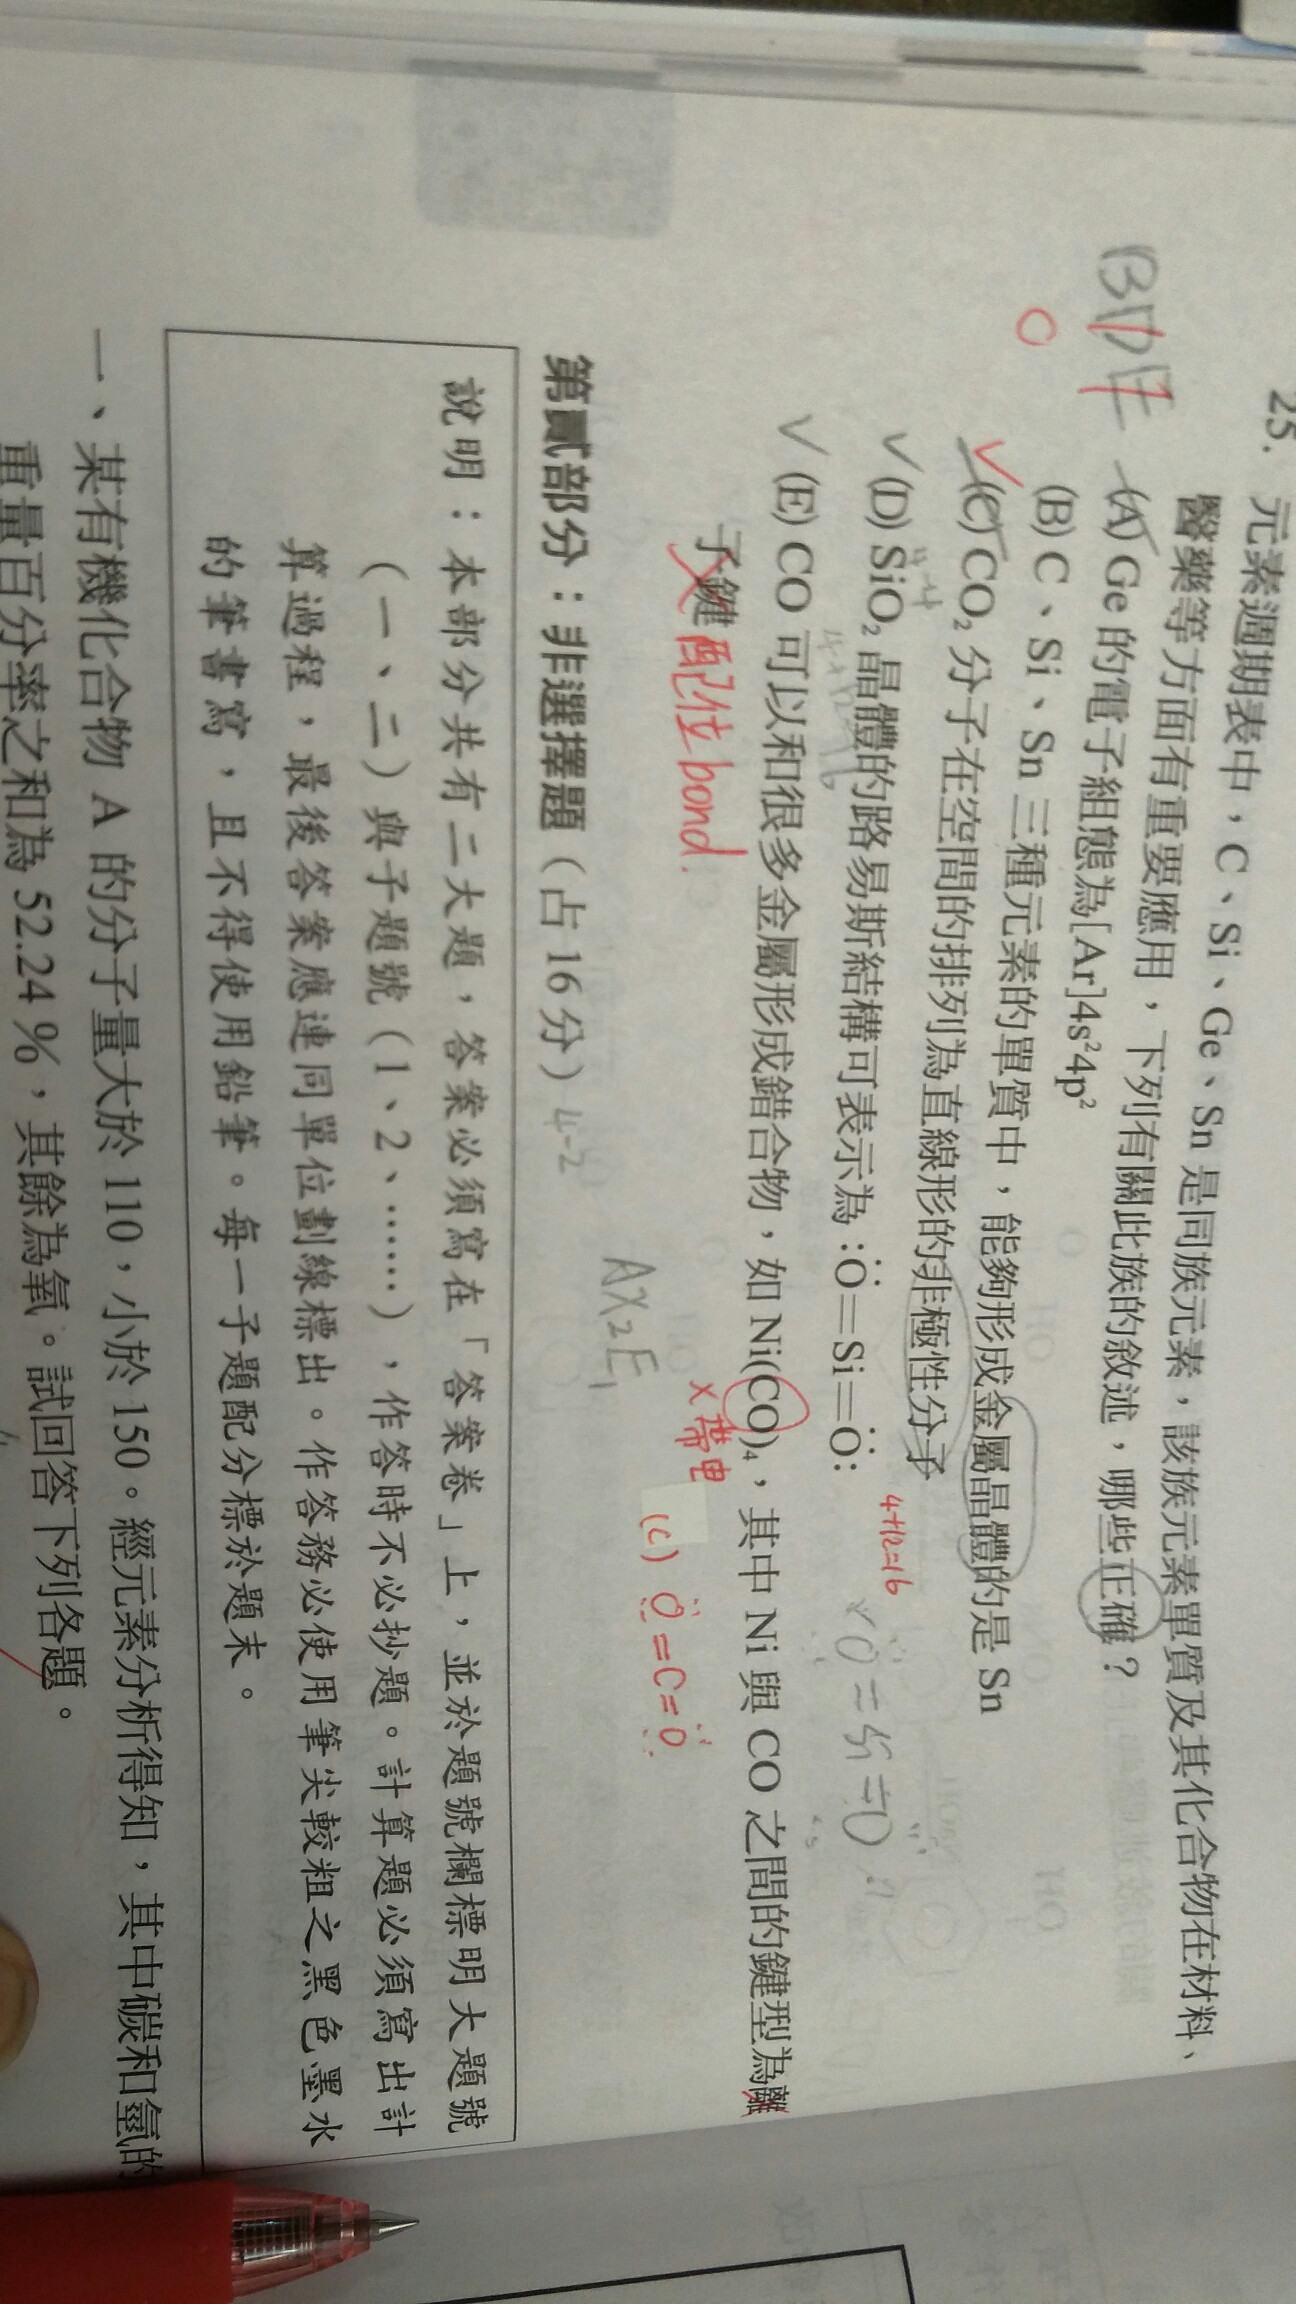 25. 元素週期表中，C、Si、Ge、Sn 是同族元素，該族元素單質及其化合物在材料、
醫藥等方面有重要應用，下列有關此族的敘述，哪些正確？
BDE
(A) Ge 的電子組態為[Ar]4s²4p²
(B) C、Si、Sn 三種元素的單質中，能夠形成金屬晶體的是 Sn
(C) CO₂ 分子在空間的排列為直線形的非極性分子
(D) SiO₂ 晶體的路易斯結構可表示為 :Ö=Si=Ö:
4+12=16
O=Si=O
(E) CO 可以和很多金屬形成錯合物，如 Ni(CO)₄，其中 Ni 與 CO 之間的鍵型為離
子鍵 配位bond.
x 帶电
(C) O=C=O
AX₂E₁
第貳部分：非選擇題（占 16 分）
4-2
說明：本部分共有二大題，答案必須寫在「答案卷」上，並於題號欄標明大題號
（一、二）與子題號（1、2、……），作答時不必抄題。計算題必須寫出計
算過程，最後答案應連同單位劃線標出。作答務必使用筆尖較粗之黑色墨水
的筆書寫，且不得使用鉛筆。每一子題配分標於題末。
一、某有機化合物 A 的分子量大於 110，小於 150。經元素分析得知，其中碳和氫的
重量百分率之和為 52.24 %，其餘為氧。試回答下列各題。